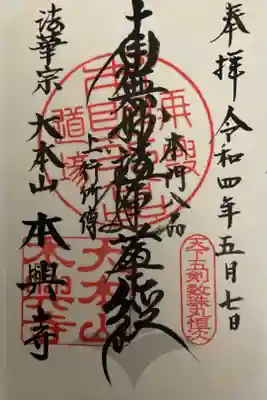 奉拝 令和四年五月七日
本門八品
南無妙法蓮華経
上行所傳
法華宗 大本山 本興寺
天下五剣数珠丸恒次
大本山
本興寺